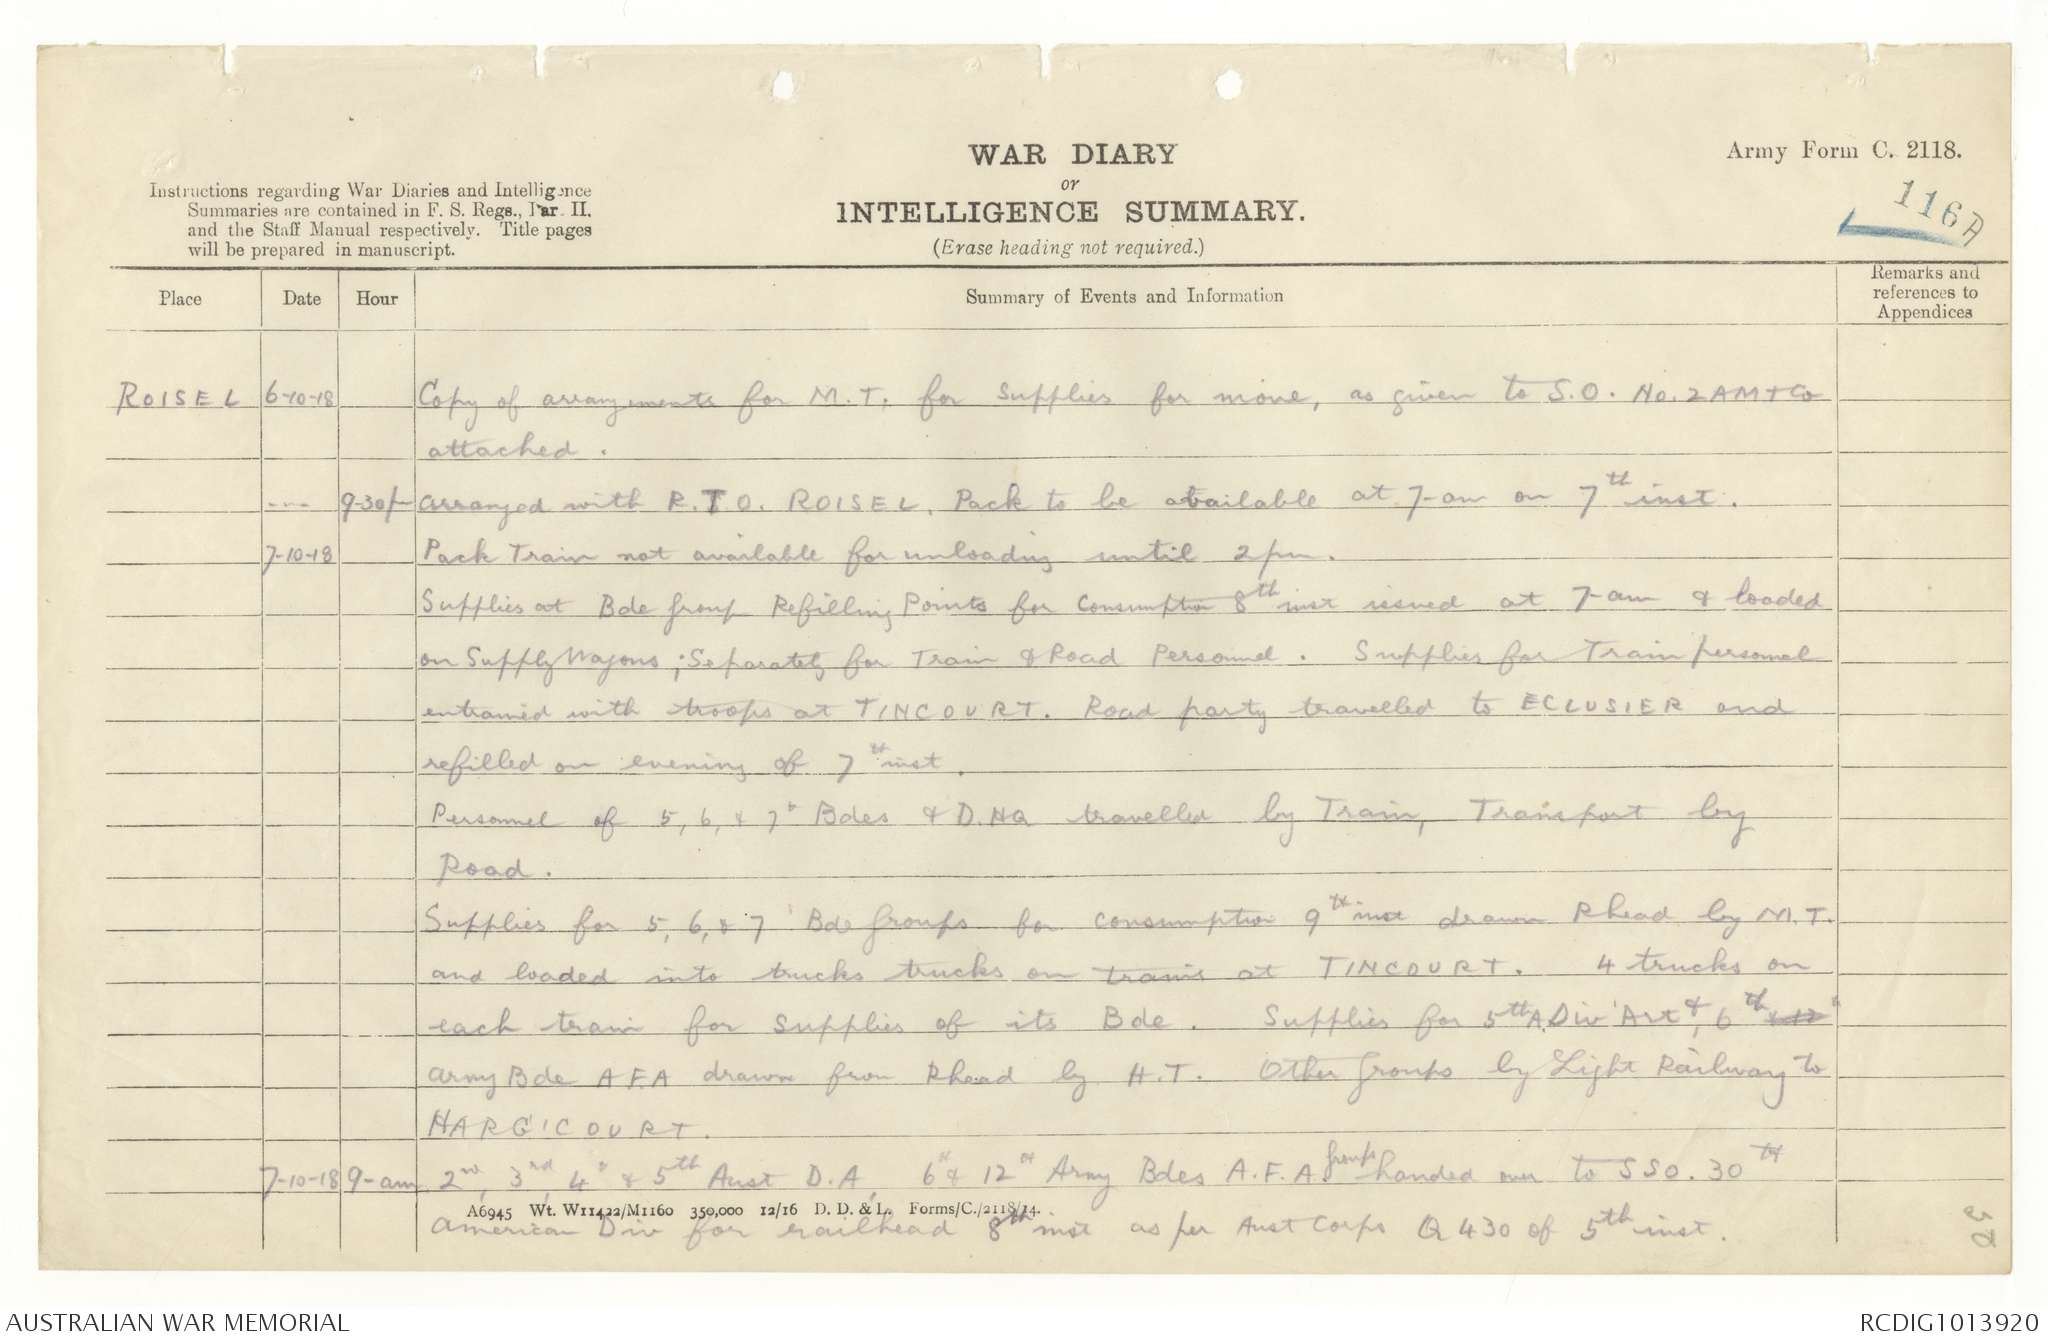 WAR DIARY
or
INTELLIGENCE SUMMARY.
(Erase heading not required.)
Army Form C. 2118.
116A
Instructions regarding War Diaries and Intelligence
Summaries are contained in F. S. Regs., Par. II.
and the Staff Manual respectively. Title pages
will be prepared in manuscript.
Place Date Hour Summary of Events and Information Remarks and references to Appendices
ROISEL 6-10-18 Copy of arrangements for M.T. for Supplies for move, as given to S.O. No. 2 AMT Co
attached.
--- 9-30 pm arranged with R.T.O. ROISEL. Pack to be available at 7-am on 7th inst.
7-10-18 Pack Train not available for unloading until 2 pm.
Supplies at Bde Group Refilling Points for consumption 8th inst issued at 7-am & loaded
on Supply Wagons; Separately for Train & Road Personnel. Supplies for Train personnel
entrained with troops at TINCOURT. Road party travelled to ECLUSIER and
refilled on evening of 7th inst.
Personnel of 5, 6, & 7" Bdes & D.HQ travelled by Train, Transport by
Road.
Supplies for 5, 6, & 7 Bde Groups for consumption 9th inst drawn Rhead by M.T.
and loaded into trucks trucks on trains at TINCOURT. 4 trucks on
each train for supplies of its Bde. Supplies for 5th A. Div Art &, 6th & 12"
Army Bde A.F.A drawn from Rhead by H.T. Other Groups by Light Railway to
HARGICOURT.
7-10-18 9-am 2nd, 3rd, 4" & 5th Aust D.A, 6th & 12th Army Bdes A.F.A. Groups handed over to SSO. 30th
A6945 Wt. W11422/M1160 350,000 12/16 D. D. & L. Forms/C./2118/14.
American Div for railhead 8th inst as per Aust Corps Q 430 of 5th inst.
AUSTRALIAN WAR MEMORIAL
RCDIG1013920